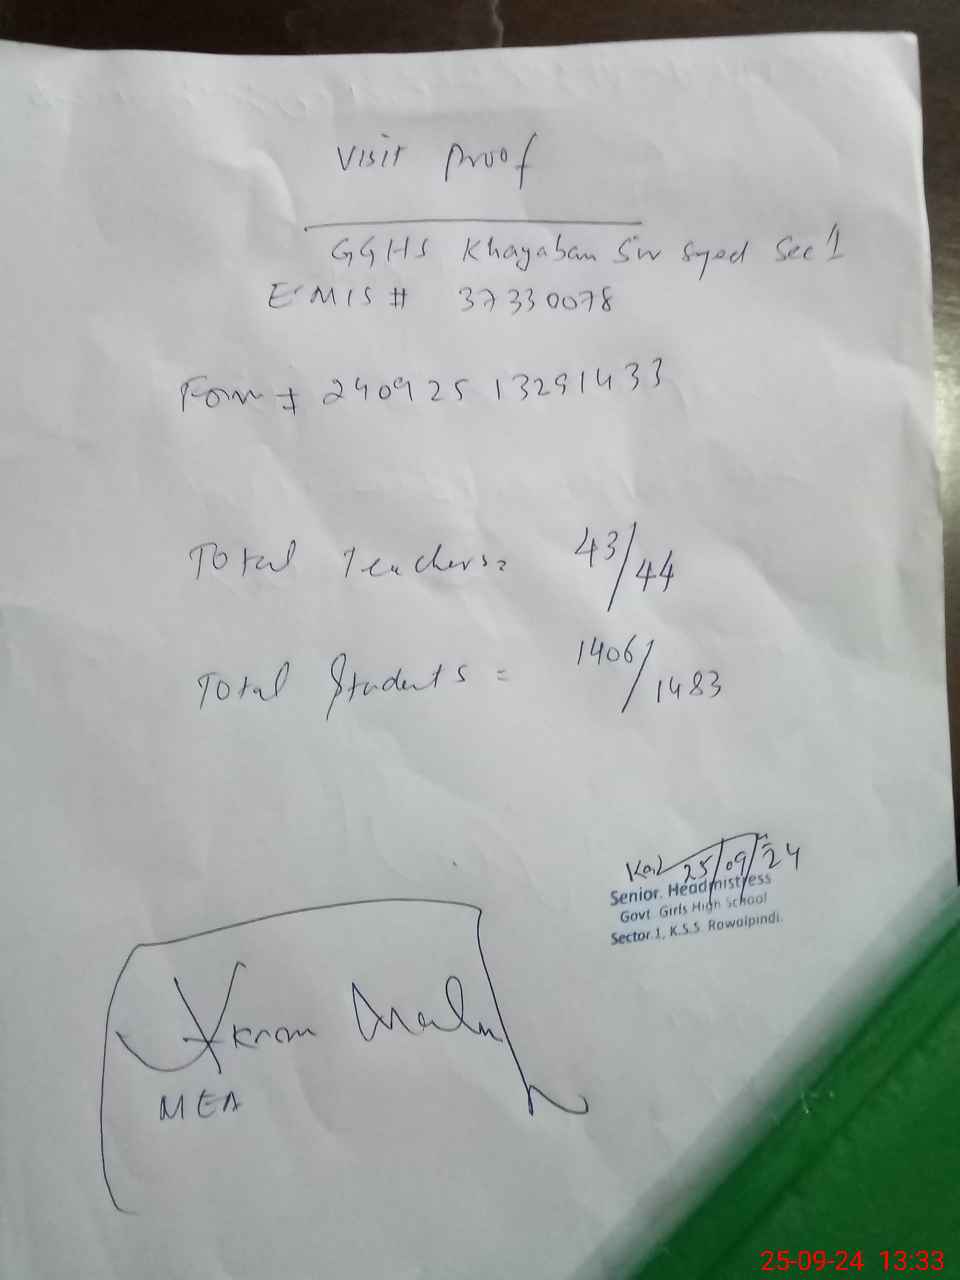 Visit Proof
GGHS Khayaban Sir Syed Sec 1
EMIS # 37330078
Form # 24092513291433
Total Teachers = 43/44
Total Students = 1406/1483
25/09/24
Senior. Headmistress
Govt. Girls High School
Sector.1, K.S.S. Rawalpindi.
Akram
MEA
25-09-24 13:33